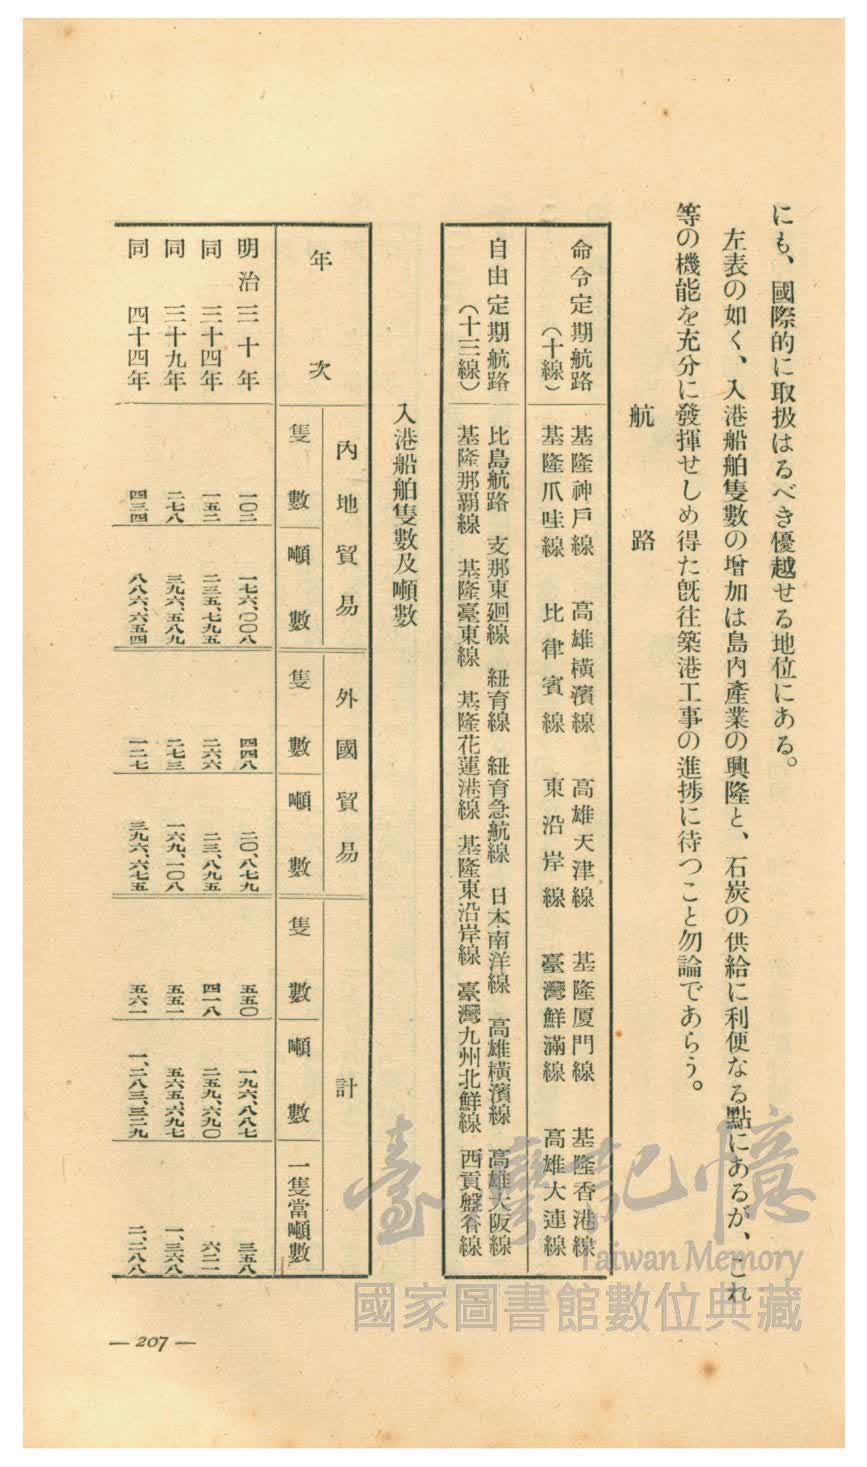 にも、國際的に取扱はるべき優越せる地位にある。
左表の如く、入港船舶隻數の增加は島內產業の興隆と、石炭の供給に利便なる點にあるが、これ
等の機能を充分に發揮せしめ得た旣往築港工事の進捗に待つこと勿論であらう。
航路
命令定期航路（十線） 基隆神戶線 高雄橫濱線 高雄天津線 基隆厦門線 基隆香港線
基隆爪哇線 比律賓線 東沿岸線 臺灣鮮滿線 高雄大連線
自由定期航路（十三線） 比島航路 支那東廻線 紐育線 紐育急航線 日本南洋線 高雄橫濱線 高雄大阪線
基隆那覇線 基隆臺東線 基隆花蓮港線 基隆東沿岸線 臺灣九州北鮮線 西貢盤谷線
入港船舶隻數及噸數
年次 內地貿易 外國貿易 計
隻數 噸數 隻數 噸數 隻數 噸數 一隻當噸數
明治三十年 一〇二 一七六、〇〇八 四四八 二〇、八七九 五五〇 一九六、八八七 三五八
同三十四年 一五二 二三五、七九五 二六六 二三、八九五 四一八 二五九、六九〇 六二一
同三十九年 二七八 三九六、五八九 二七三 一六九、一〇八 五五一 五六五、六九七 一、三六八
同四十四年 四三四 八八六、六五四 一二七 三九六、六七五 五六一 一、二八三、三二九 二、二八八
— 207 —
臺灣記憶
Taiwan Memory
國家圖書館數位典藏